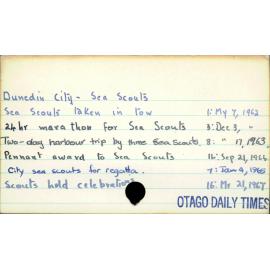 Dunedin City - Sea Scouts
Sea Scouts taken in tow 1: My 7, 1962
24 hr marathon for Sea Scouts 3: Dec 3, "
Two-day harbour trip by three Sea Scouts. 8: " 17, 1963
Pennant award to Sea Scouts 16: Sep 21, 1964
City sea scouts for regatta. 7: Jan 4, 1966
Scouts hold celebrations 16: Mr 21, 1967
OTAGO DAILY TIMES